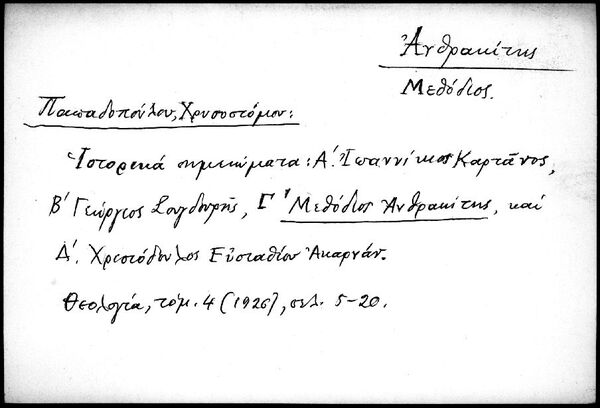 Ἀνθρακίτης
Μεθόδιος.
Παπαδοπούλου, Χρυσοστόμου:
Ἱστορικά σημειώματα: Α'. Ἰωαννίκιος Καρτᾶνος,
Β' Γεώργιος Σουγδουρῆς, Γ' Μεθόδιος Ἀνθρακίτης, καί
Δ'. Χριστόδουλος Εὐσταθίου Ἀκαρνάν.
Θεολογία, τόμ. 4 (1926), σελ. 5-20.